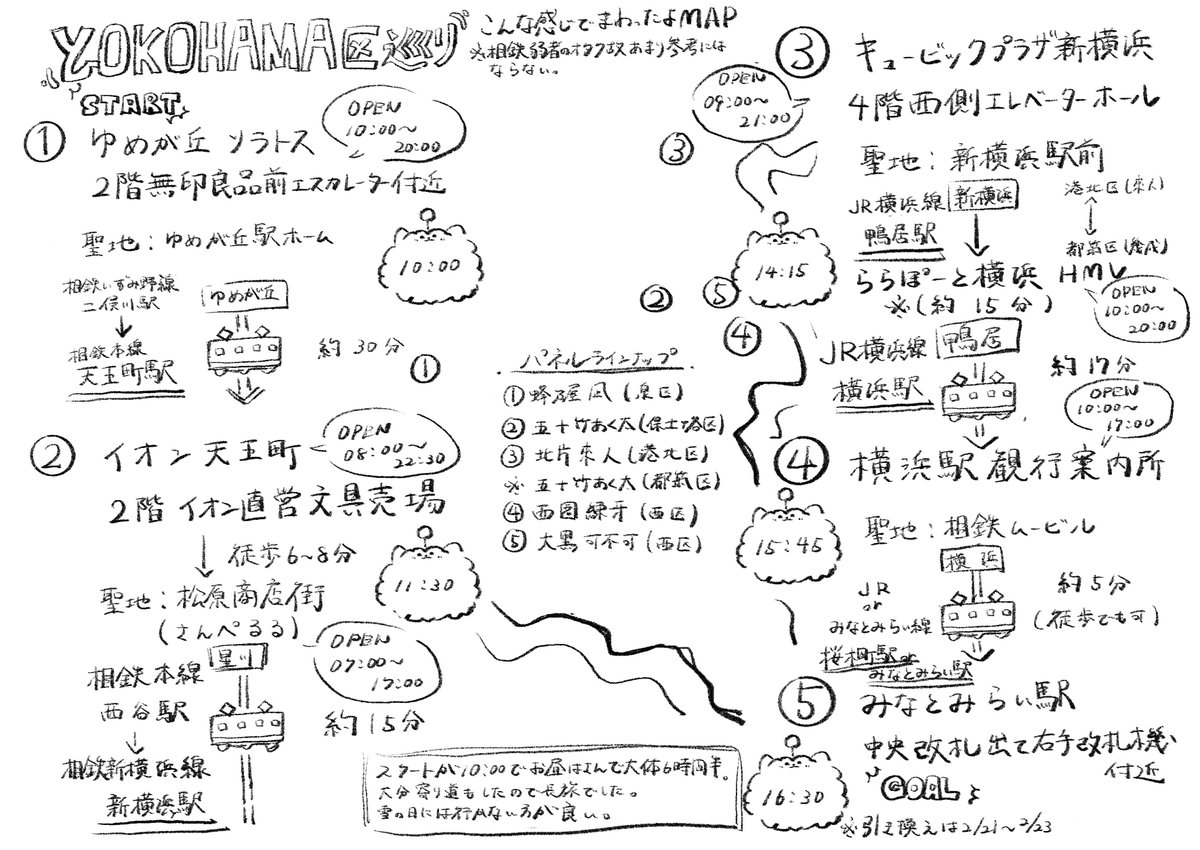 YOKOHAMA区巡り
こんな感じでまわったよMAP
※相鉄弱者のオタク故あまり参考には
ならない。
START
① ゆめが丘 ソラトス
OPEN
10:00〜
20:00
2階無印良品前エスカレーター付近
聖地：ゆめが丘駅ホーム
10:00
相鉄いずみ野線
二俣川駅
ゆめが丘
相鉄本線
天王町駅
約30分
①
② イオン天王町
OPEN
08:00〜
22:30
2階 イオン直営文具売場
徒歩6〜8分
11:30
聖地：松原商店街
(さんぺるる)
OPEN
07:00〜
17:00
星川
相鉄本線
西谷駅
約15分
相鉄新横浜線
新横浜駅
パネルラインナップ
① 蜂乃屋凪(泉区)
② 五十竹あく太(保土ヶ谷区)
③ 北片來人(港北区)
※ 五十竹あく太(都筑区)
④ 西園練牙(西区)
⑤ 大黒可不可(西区)
スタートが10:00でお昼はさんで大体6時間半。
大分寄り道もしたので長旅でした。
雪の日には行かない方が良い。
③ キュービックプラザ新横浜
OPEN
09:00〜
21:00
4階西側エレベーターホール
③
聖地：新横浜駅前
JR横浜線
新横浜
鴨居駅
港北区(來人)
都筑区(幾成)
14:15
ららぽーと横浜 HMV
※(約15分)
OPEN
10:00〜
20:00
②
⑤
④
JR横浜線
鴨居
横浜駅
約17分
OPEN
10:00〜
17:00
④ 横浜駅観行案内所
15:45
聖地：相鉄ムービル
横浜
JR
or
みなとみらい線
約5分
(徒歩でも可)
桜木町駅or
みなとみらい駅
⑤ みなとみらい駅
中央改札出て右手改札機
付近
16:30
GOAL
※引き換えは2/21〜2/23